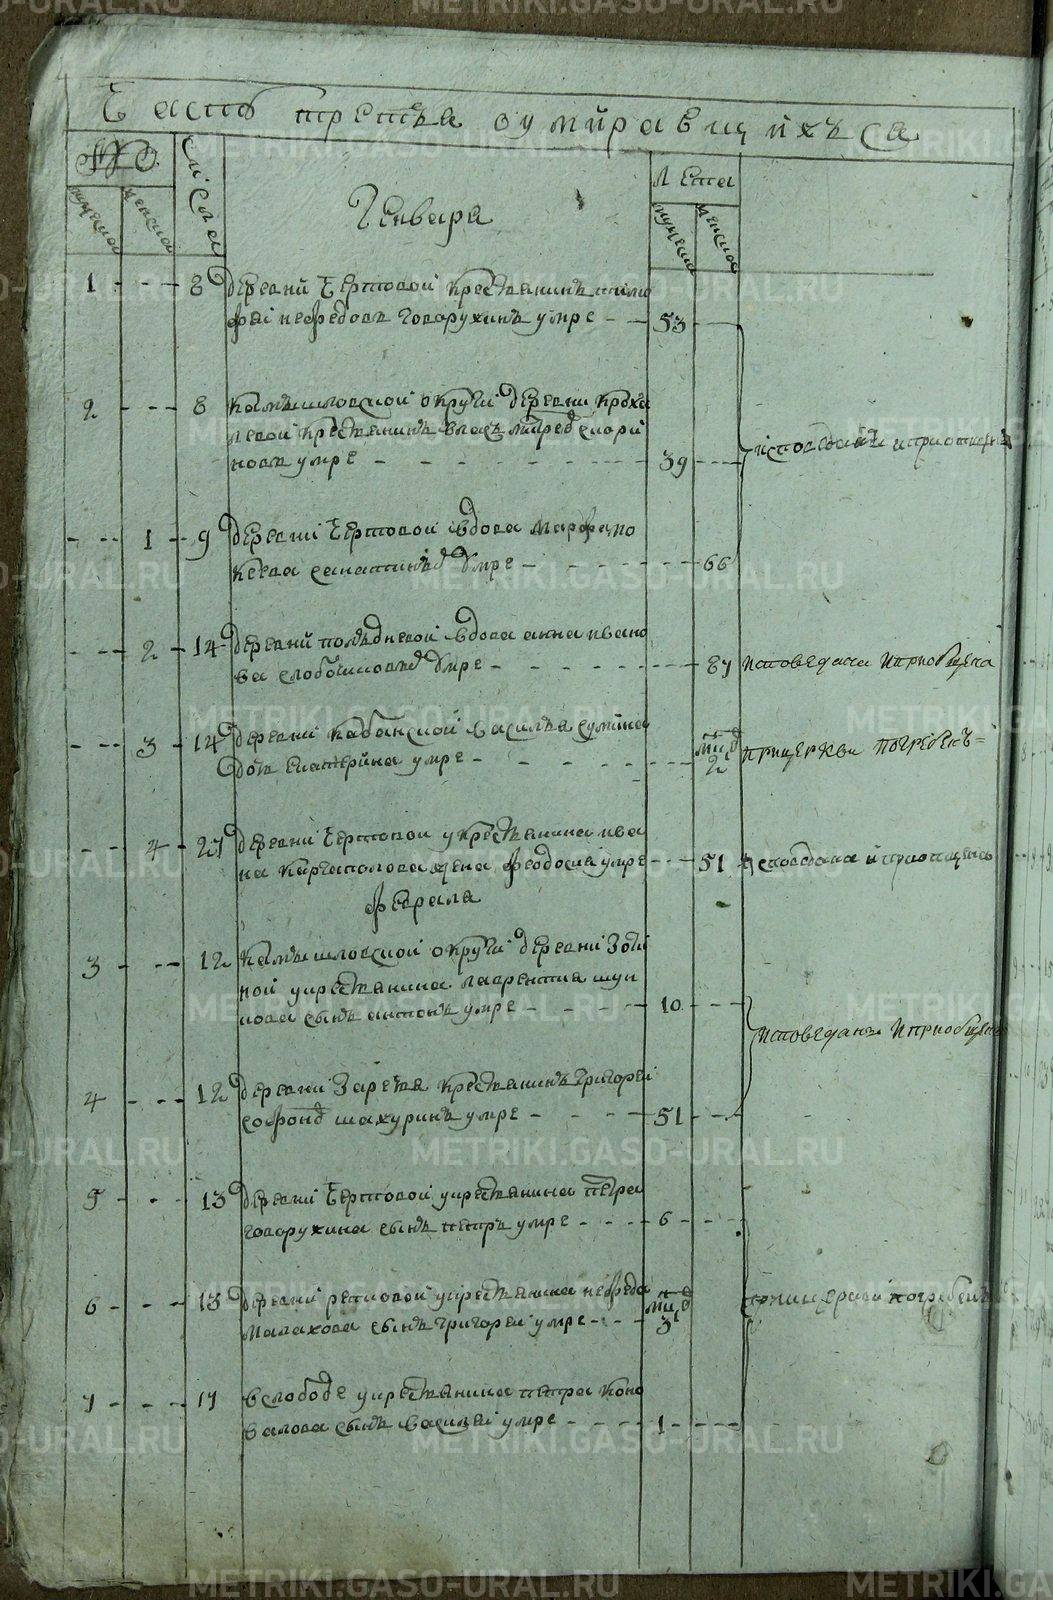 Часть третья о умирающихъ
№
числа
мужеска
женска
Генваря
Лета
мужеска
женска
1 - - - 8 деревни Чертовой крестьянинъ тимо
фей нефедовъ Говорухинъ умре - - 53 - - -
2 - - - 8 камышловской округи деревни
левой крестьянинъ власъ
новъ умре - - - 39 - - -
исповеданъ и приобщенъ
- - - 1 - 9 деревни Чертовой вдова марфа
умре - - - 66
- - - 2 - 14 деревни полъдневой вдова анна ивано
ва умре - - - 87 исповедана и приобщена
- - - 3 - 14 деревни Кабанской василья сумина
дочь екатерина умре - - - мцд
2 при церкви погребенъ
- - - 4 - 27 деревни Чертовой у крестьянина ива
на Каргаполова жена феодосия умре - - - 51 исповедана и приобщена
февраля
3 - - - 12 камышловской округи деревни
ной у крестьянина лаврентия
нова сынъ антонъ умре - - - 10 - - -
исповеданъ и приобщенъ
4 - - - 12 деревни Заречья крестьянинъ Григорей
софоно шахуринъ умре - - - 51 - - -
5 - - - 13 деревни Чертовой у крестьянина петра
Говорухина сынъ петръ умре - - - 6 - - -
6 - - - 13 деревни у крестьянина нефеда
Малахова сынъ Григорей умре - - - мцд
3
при церкви погребенъ
7 - - - 17 в слободе у крестьянина петра Коно
валова сынъ василей умре - - - 1 - - -
METRIKI.GASO-URAL.RU